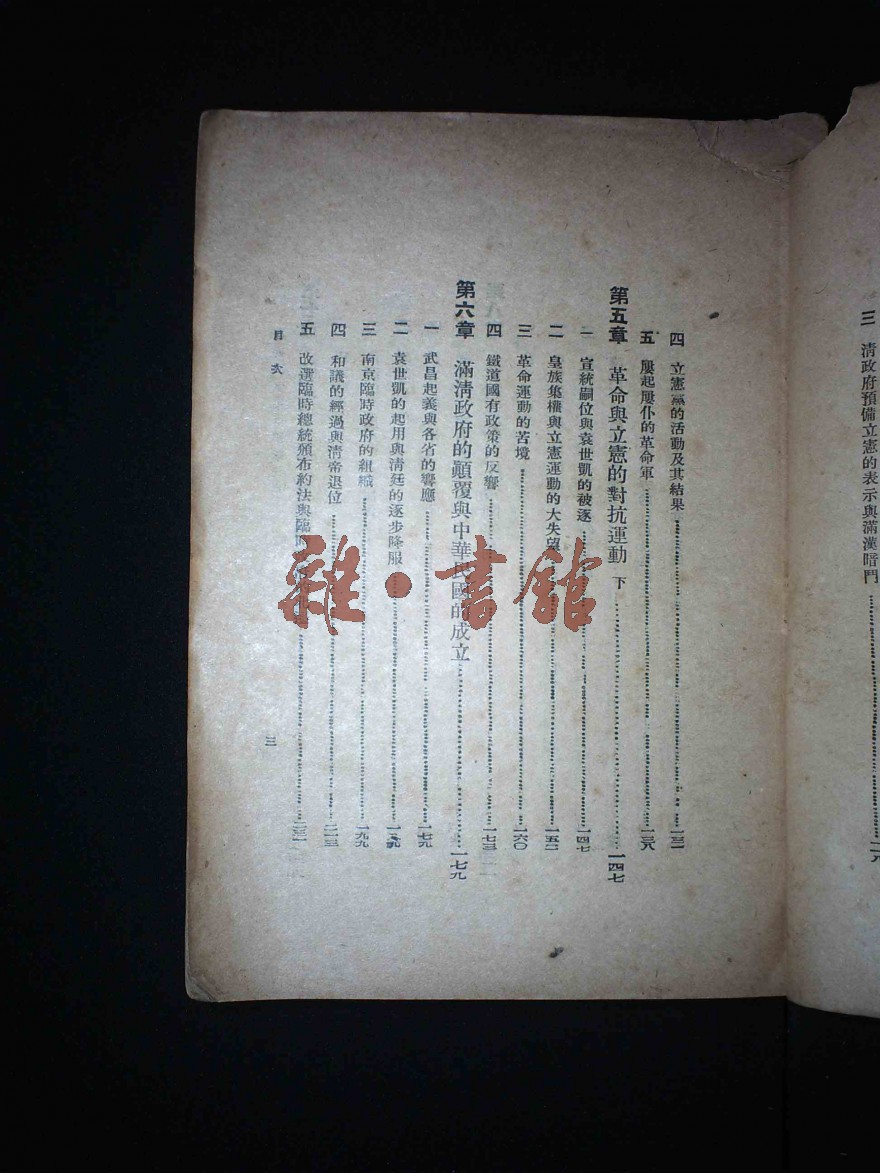 三 清政府預備立憲的表示與滿漢暗鬥
四 立憲黨的活動及其結果 一三一
五 屢起屢仆的革命軍 一三八
第五章 革命與立憲的對抗運動 下 一四七
一 宣統嗣位與袁世凱的被逐 一四七
二 皇族集權與立憲運動的大失望 一五二
三 革命運動的苦境 一六〇
四 鐵道國有政策的反響 一七三
第六章 滿清政府的顛覆與中華民國的成立 一七九
一 武昌起義與各省的響應 一七九
二 袁世凱的起用與清廷的逐步降服
三 南京臨時政府的組織 一九九
四 和議的經過與清帝退位 二一三
五 改選臨時總統頒布約法與臨時
目次
三
雜·書館